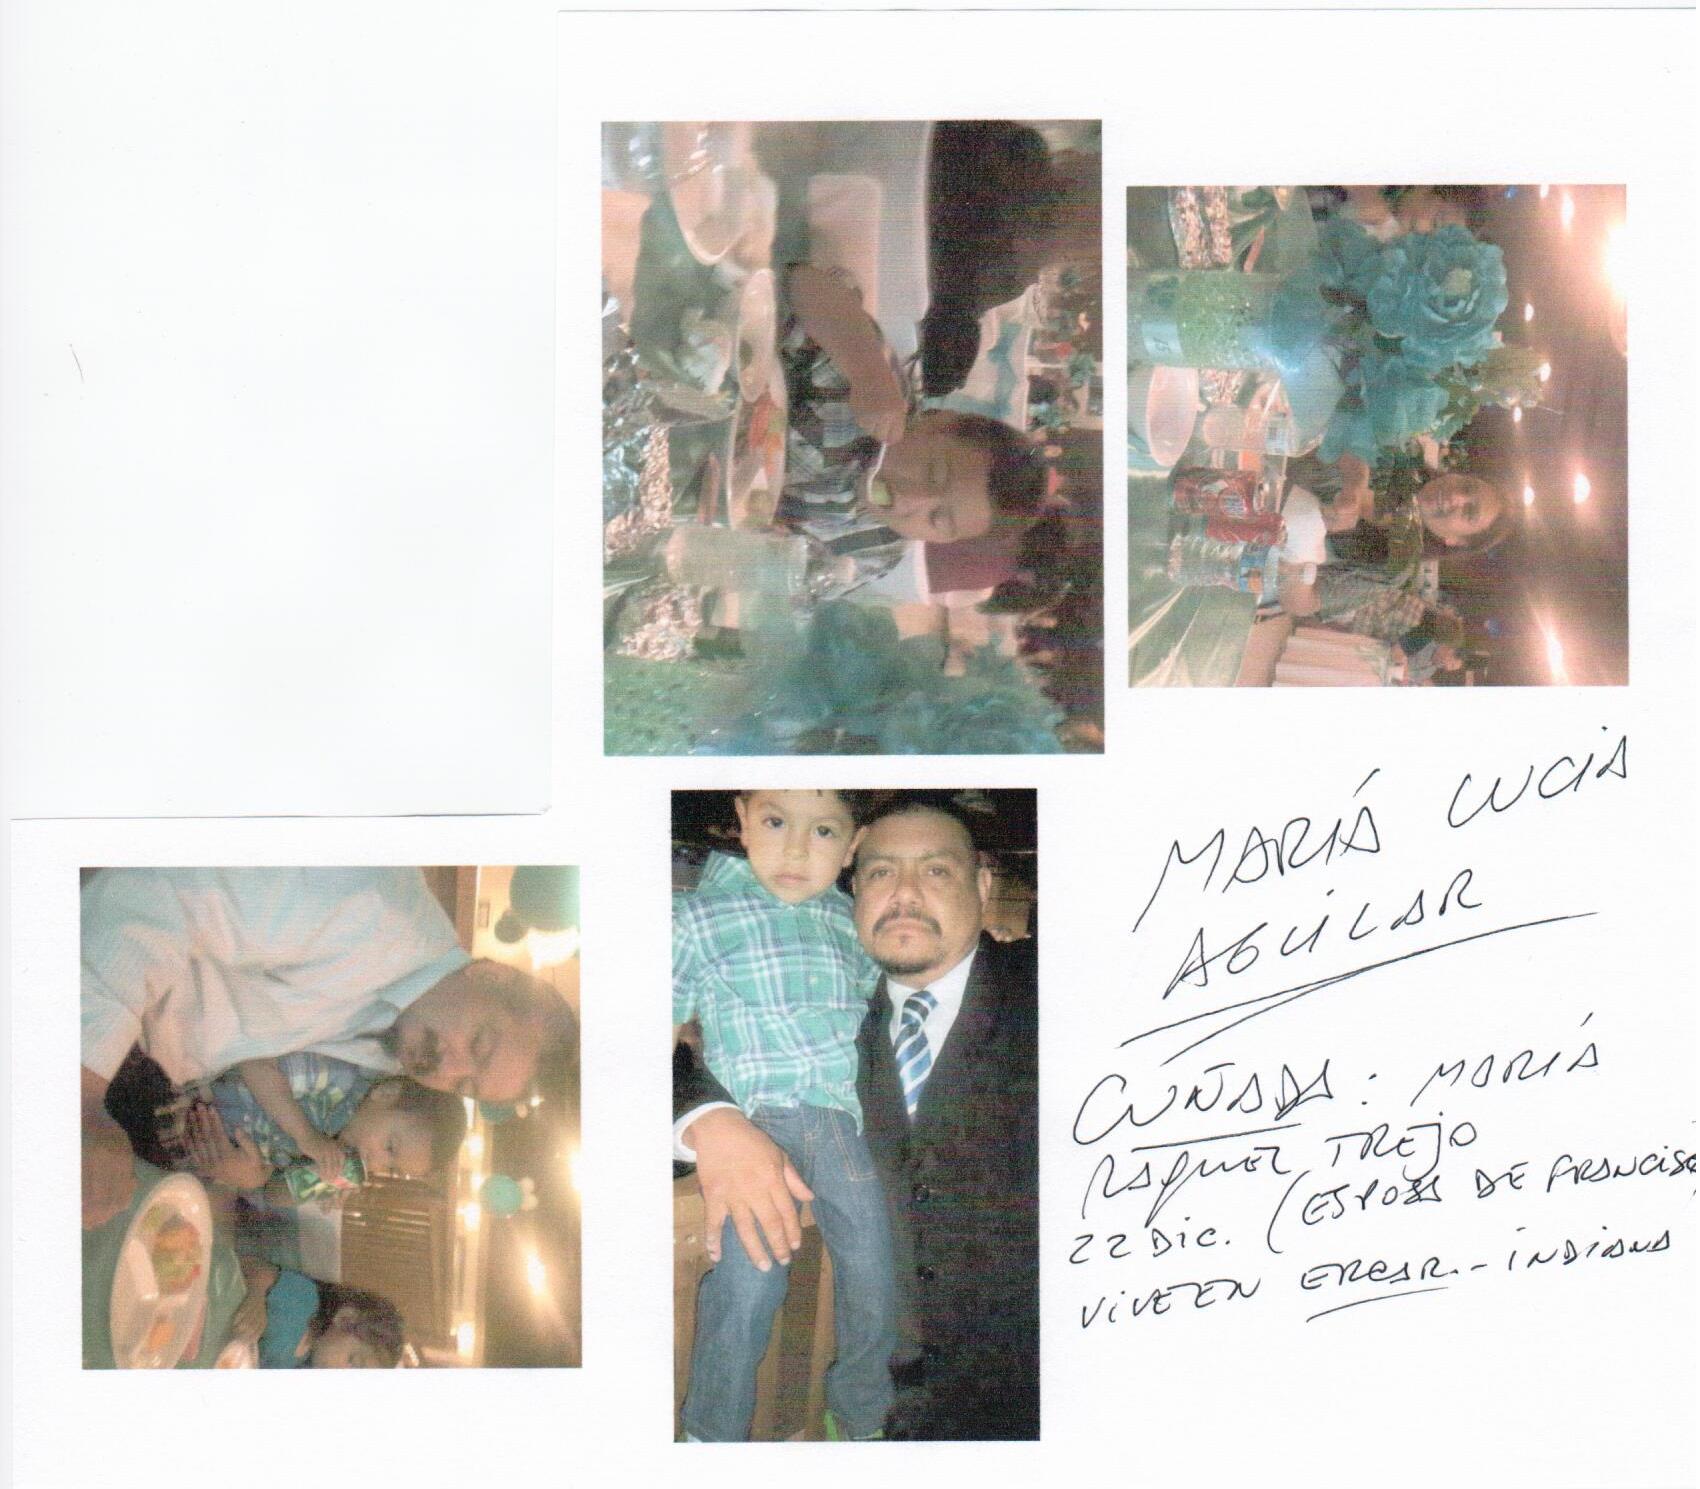 MARÍA LUCIA
AGUILAR
CUÑADA: MARÍA
RAQUEL TREJO
22 DIC. (ESPOSA DE FRANCISC
VIVE EN - INDIANA